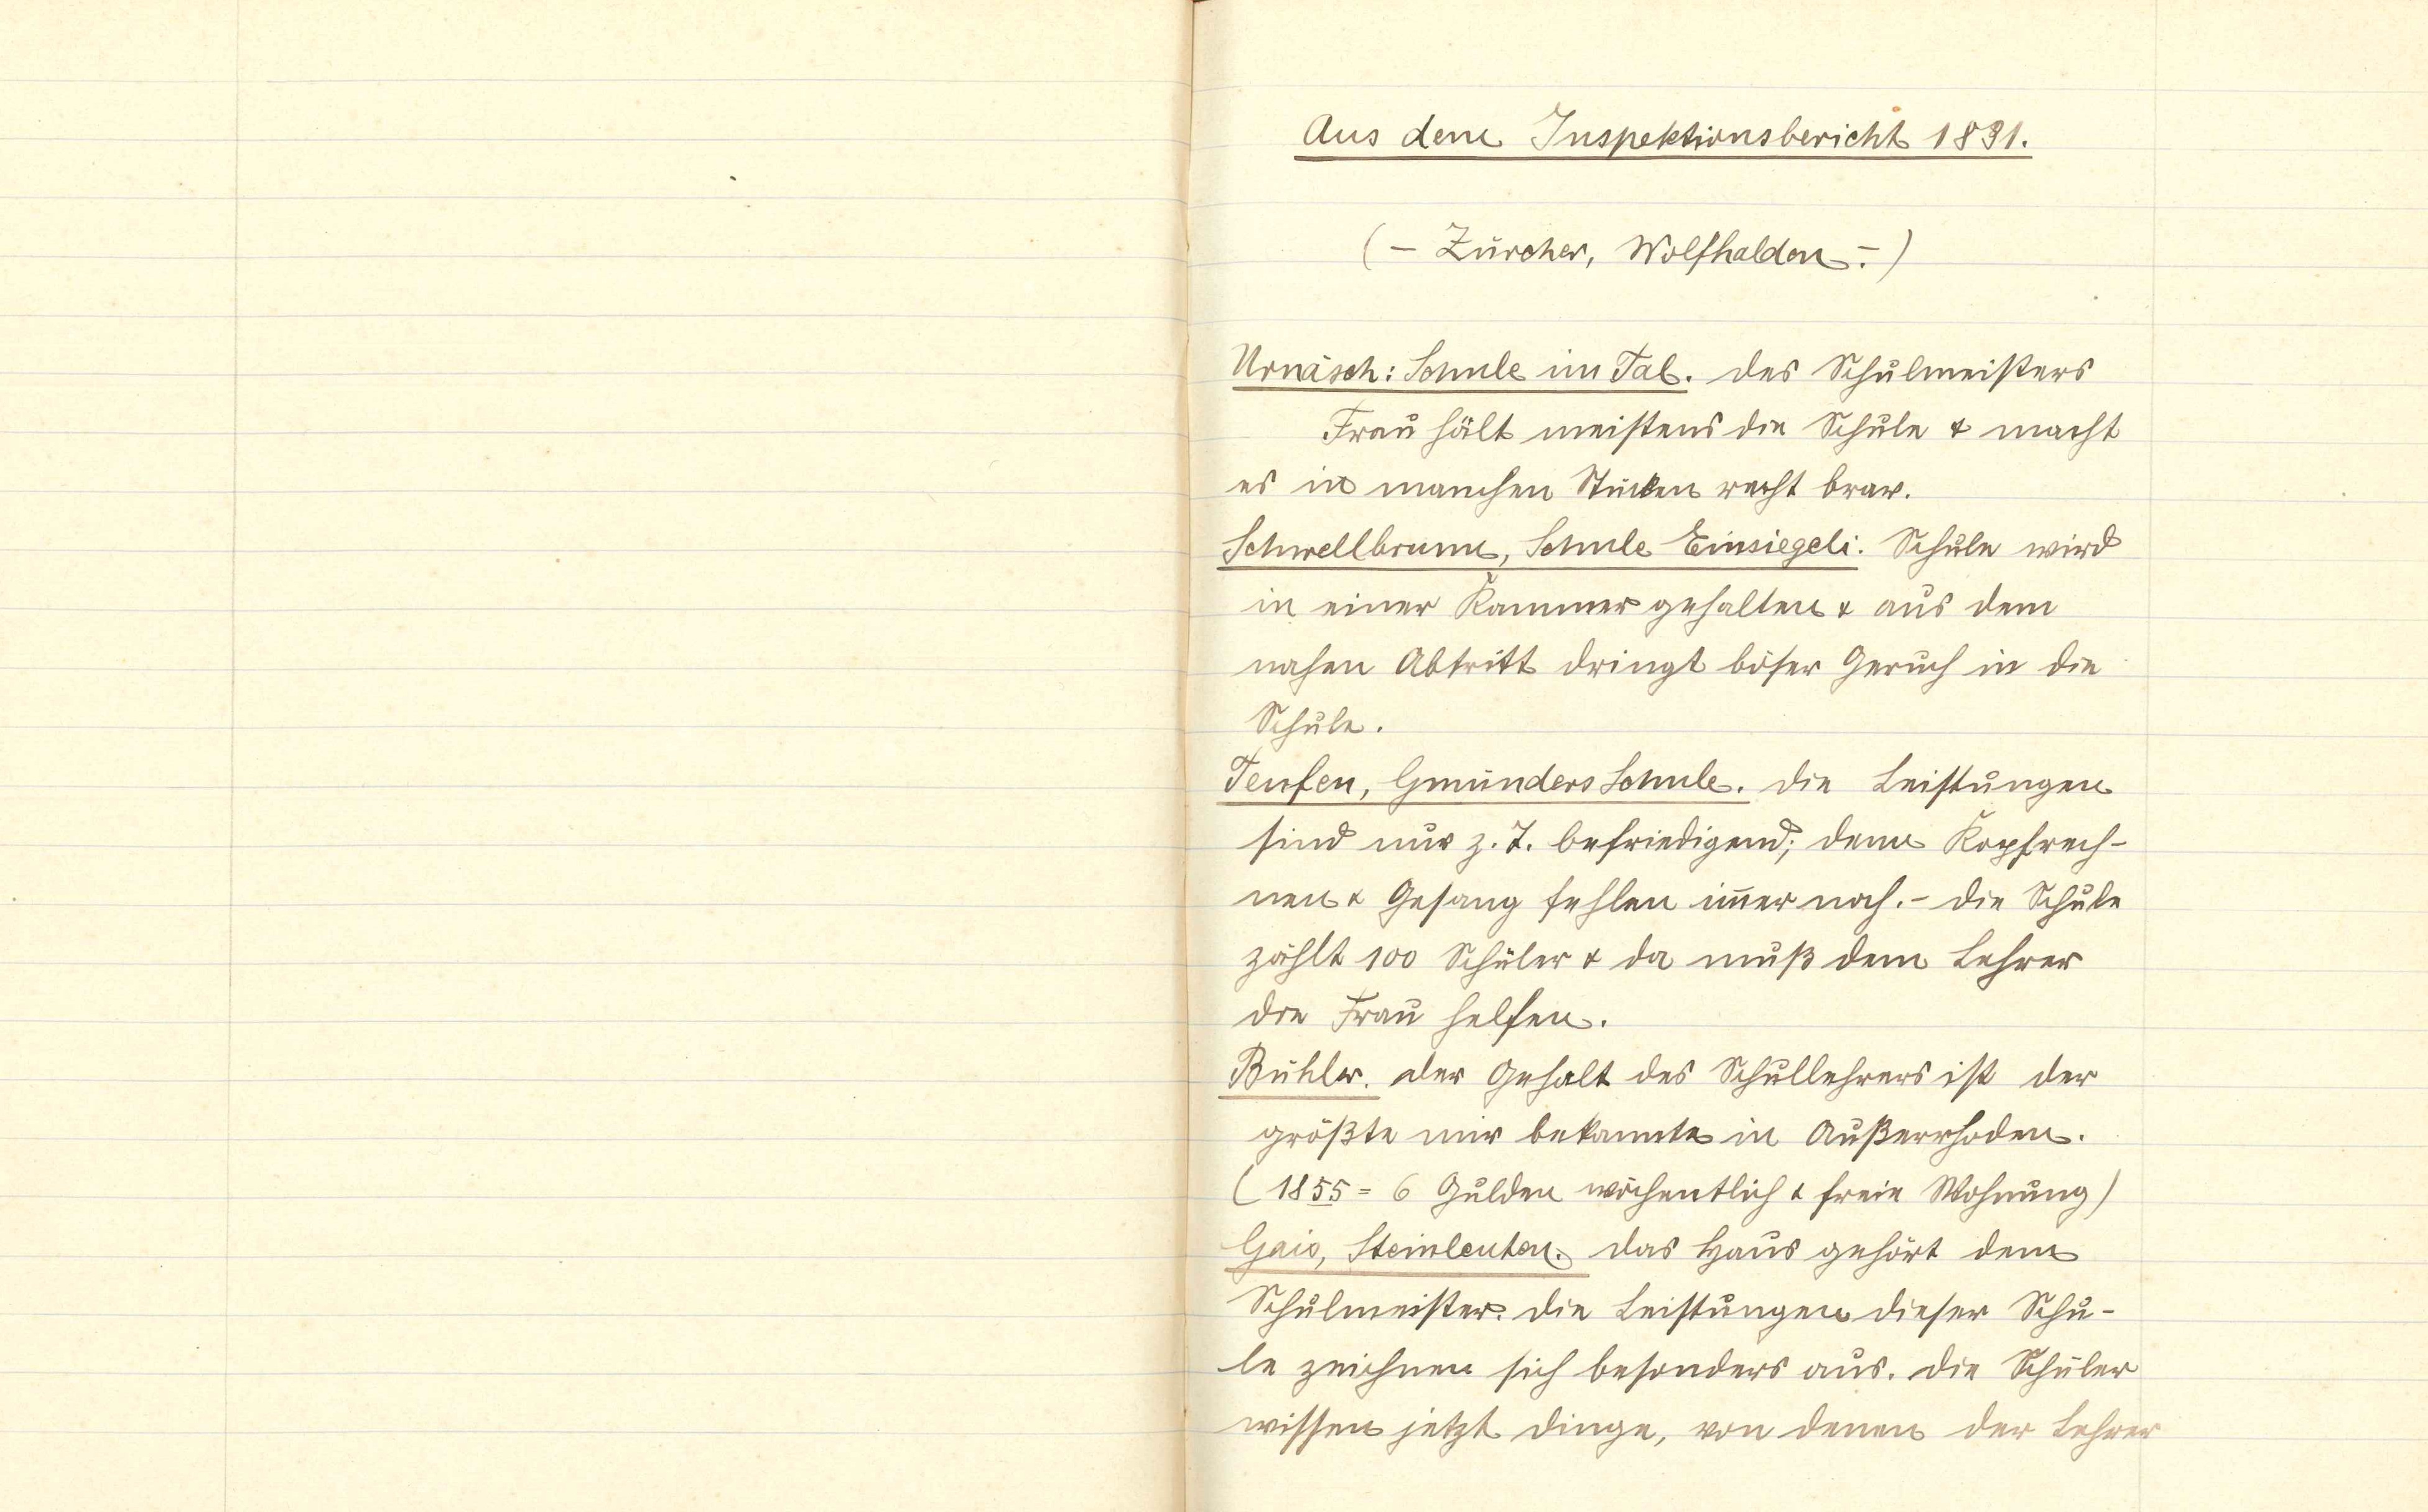 Aus dem Inspektionsbericht 1831.
(- Zürcher, Wolfhalden.-)
Urnäsch: Schule im Tal. Des Schulmeisters
Frau hält meistens die Schule & macht
es in manchen Stücken recht brav.
Schwellbrunn, Schule Einsiegeli. Schule wird
in einer Kammer gehalten & aus dem
nahen Abtritt dringt böser Geruch in die
Schule.
Teufen, Gmünders Schule. Die Leistungen
sind nur z. T. befriedigend; denn Kopfrech-
nen & Gesang fehlen im̅er noch. - Die Schule
zählt 100 Schüler & da muß dem Lehrer
die Frau helfen.
Bühler. Der Gehalt des Schullehrers ist der
größte mir bekannte in Außerrhoden.
(1855 = 6 Gulden wöchentlich & freie Wohnung)
Gais, Steinleuten. Das Haus gehört dem
Schulmeister. Die Leistungen dieser Schu-
le zeichnen sich besonders aus. Die Schüler
wissen jetzt Dinge, von denen der Lehrer